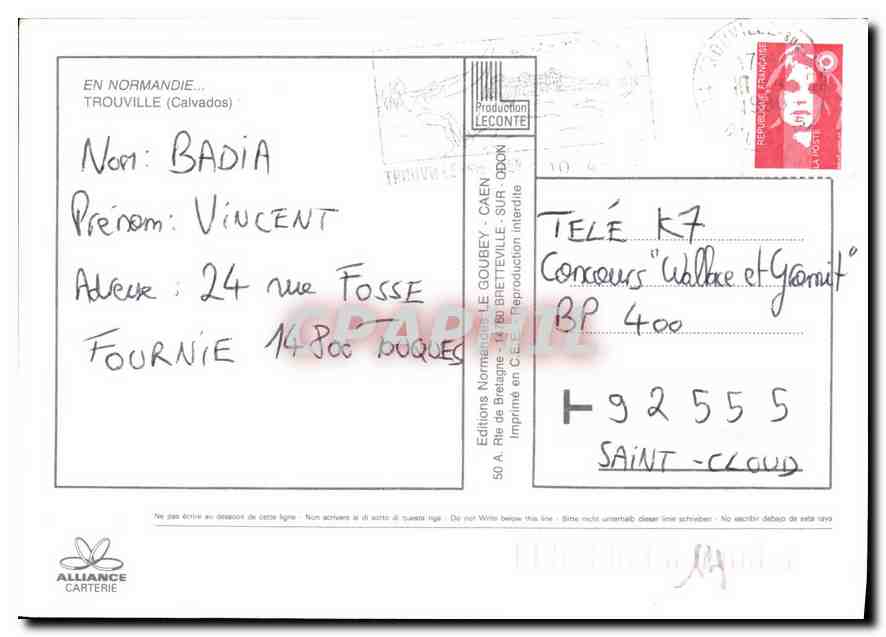 EN NORMANDIE...
TROUVILLE (Calvados)
Nom: BADIA
Prénom: ViNCENT
Adresse : 24 rue FOSSE
FOURNiE 14800 TOUQUES
Production
LECONTE
Editions Normandes LE GOUBEY - CAEN
50 A. Rte de Bretagne - 14760 BRETTEVILLE - SUR - ODON
Imprimé en C.E.E. Reproduction interdite
REPUBLIQUE FRANÇAISE
LA POSTE
TELÉ K7
Concours "Wallace et Gromit"
BP 400
92555
SAiNT-CLOUD
CPAPHIL
Ne pas écrire au dessous de cette ligne - Non scrivere al di sotto di questa riga - Do not Write below this line - Bitte nicht unterhalb dieser linie schreiben - No escribir debajo de esta raya
ALLIANCE
CARTERIE